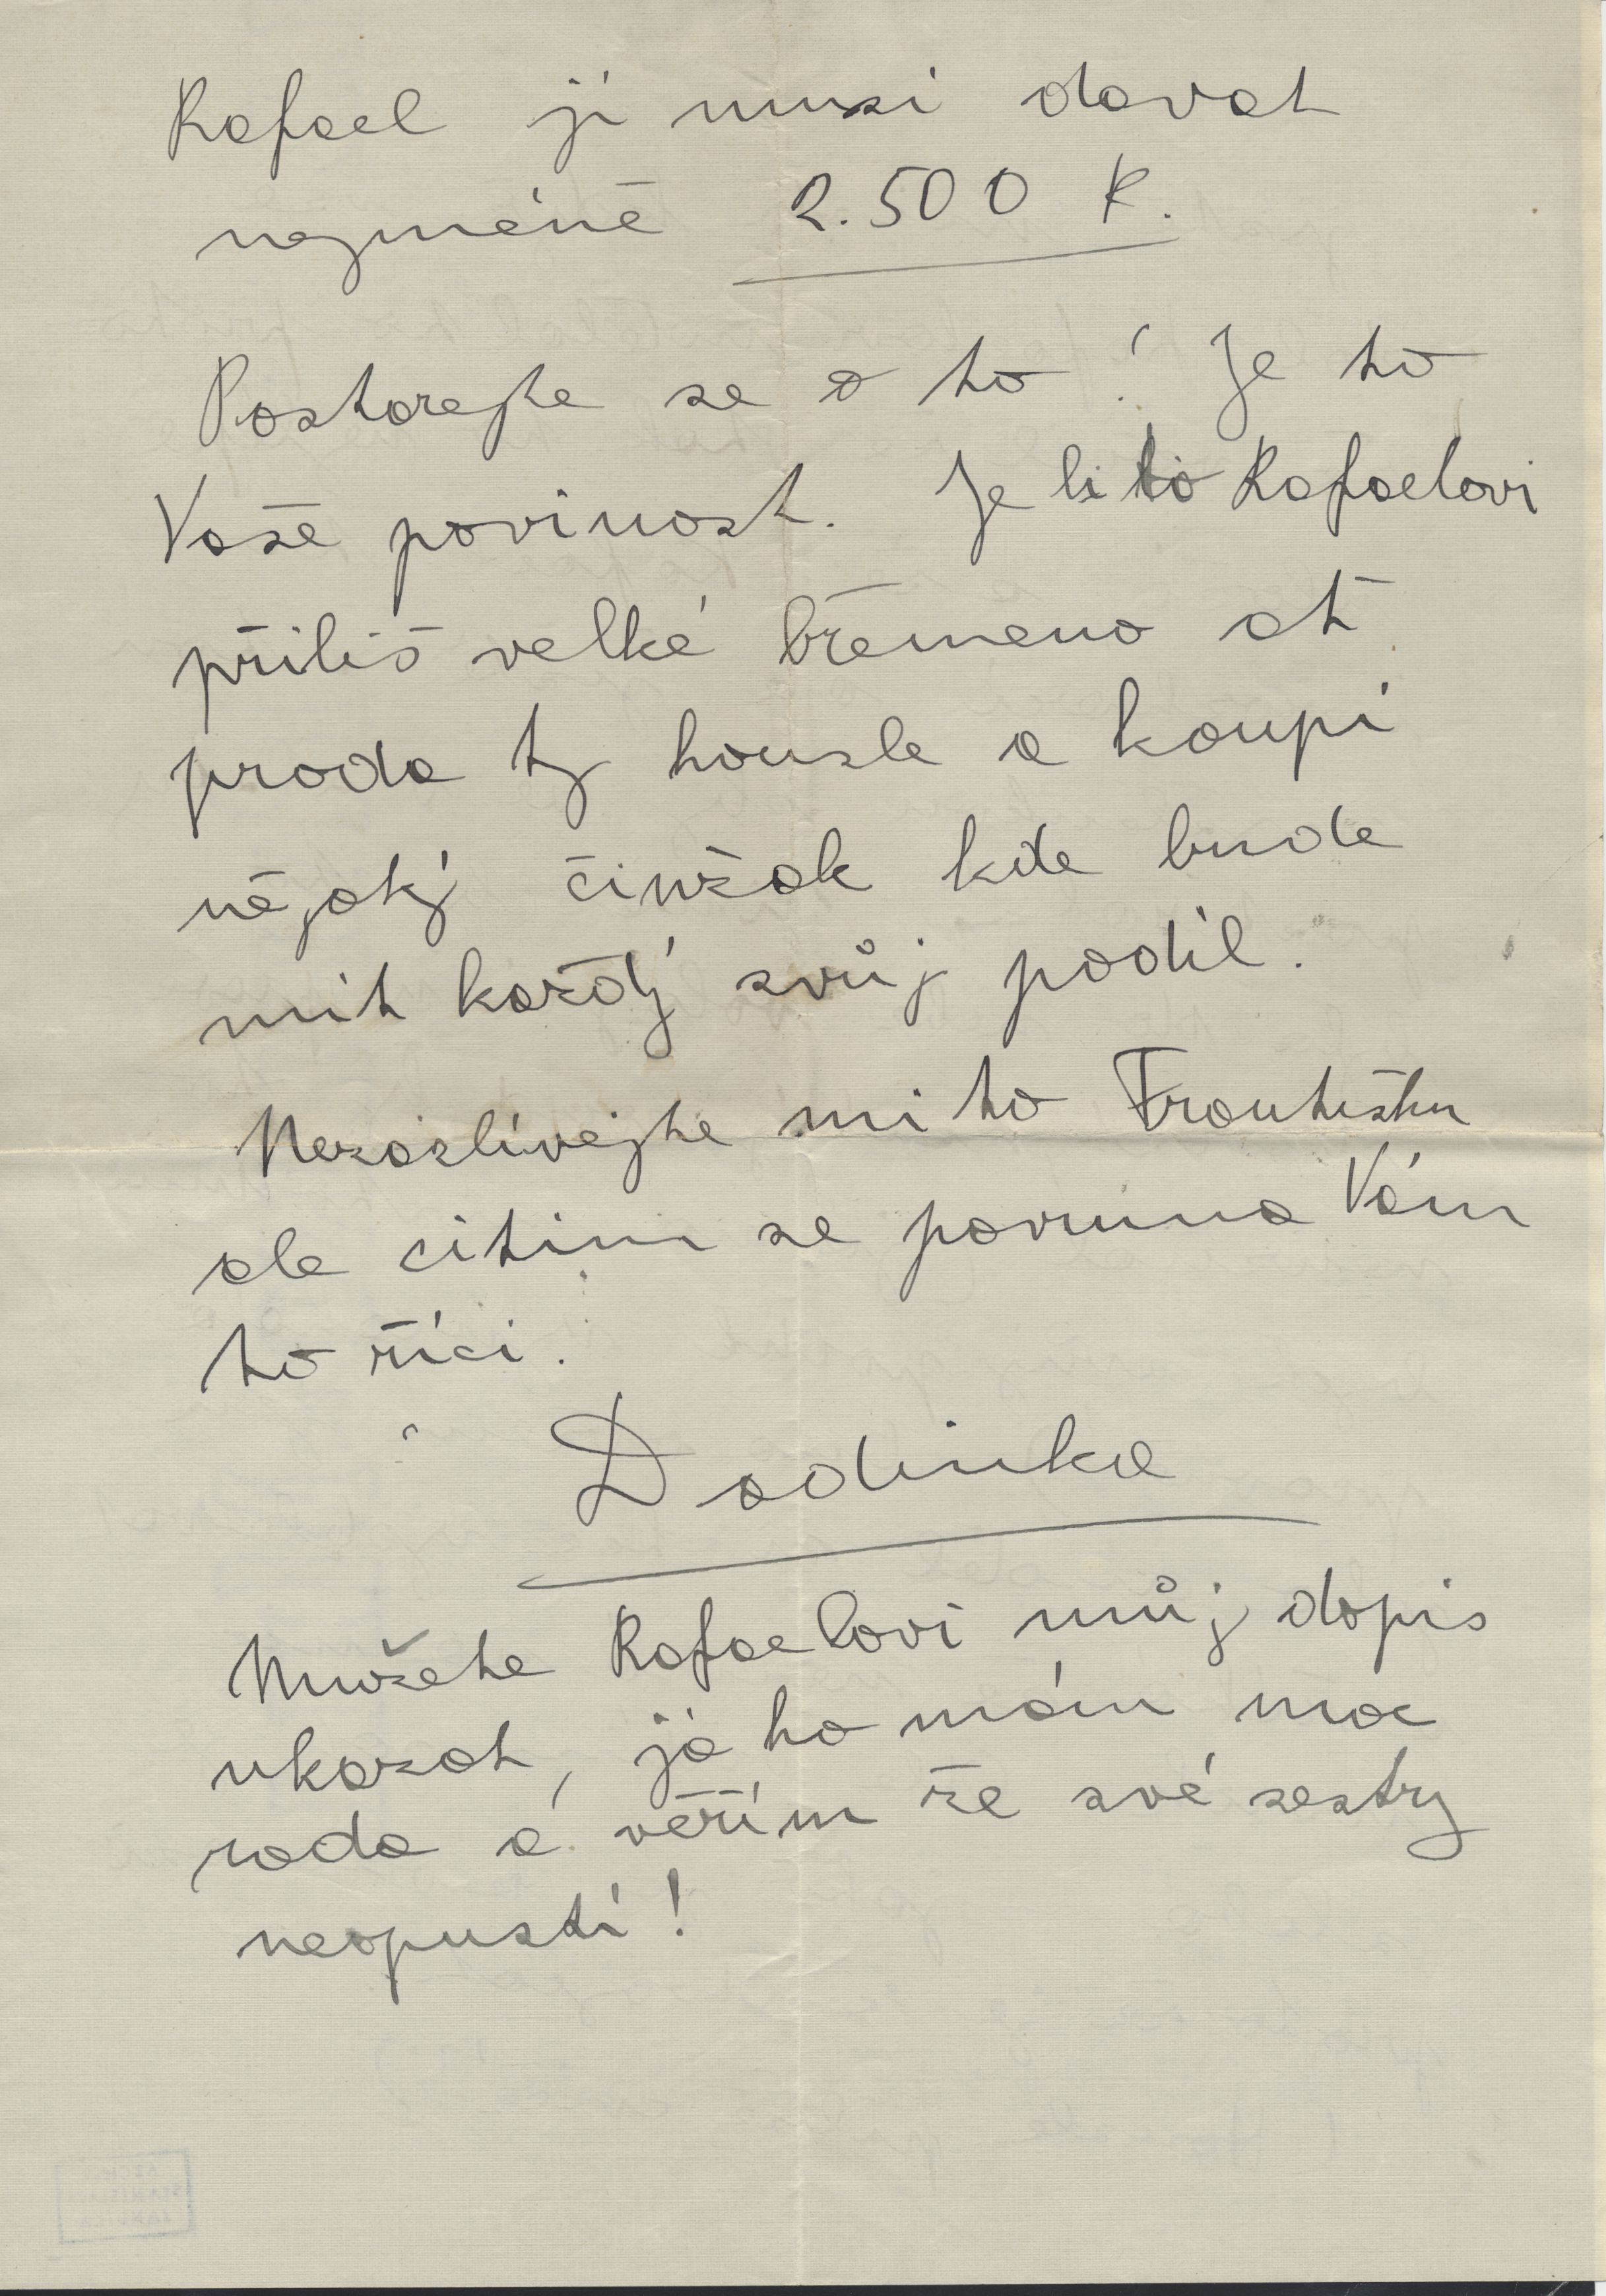 Rafael jí musí davat
nejméně 2.500 K.
Postarejte se o to! Je to
Vaše povinost. Je li to Rafaelovi
příliš velké břemeno at
proda ty housle a koupí
nějaký činžak kde bude
mit každý svůj podíl.
Nezazlívejte mi to Frantíšku
ale citim se povinna Vám
to říci.
Dadinka
Mužete Rafaelovi můj dopis
ukazat, já ho mám moc
rada a věřím že své sestry
neopustí!